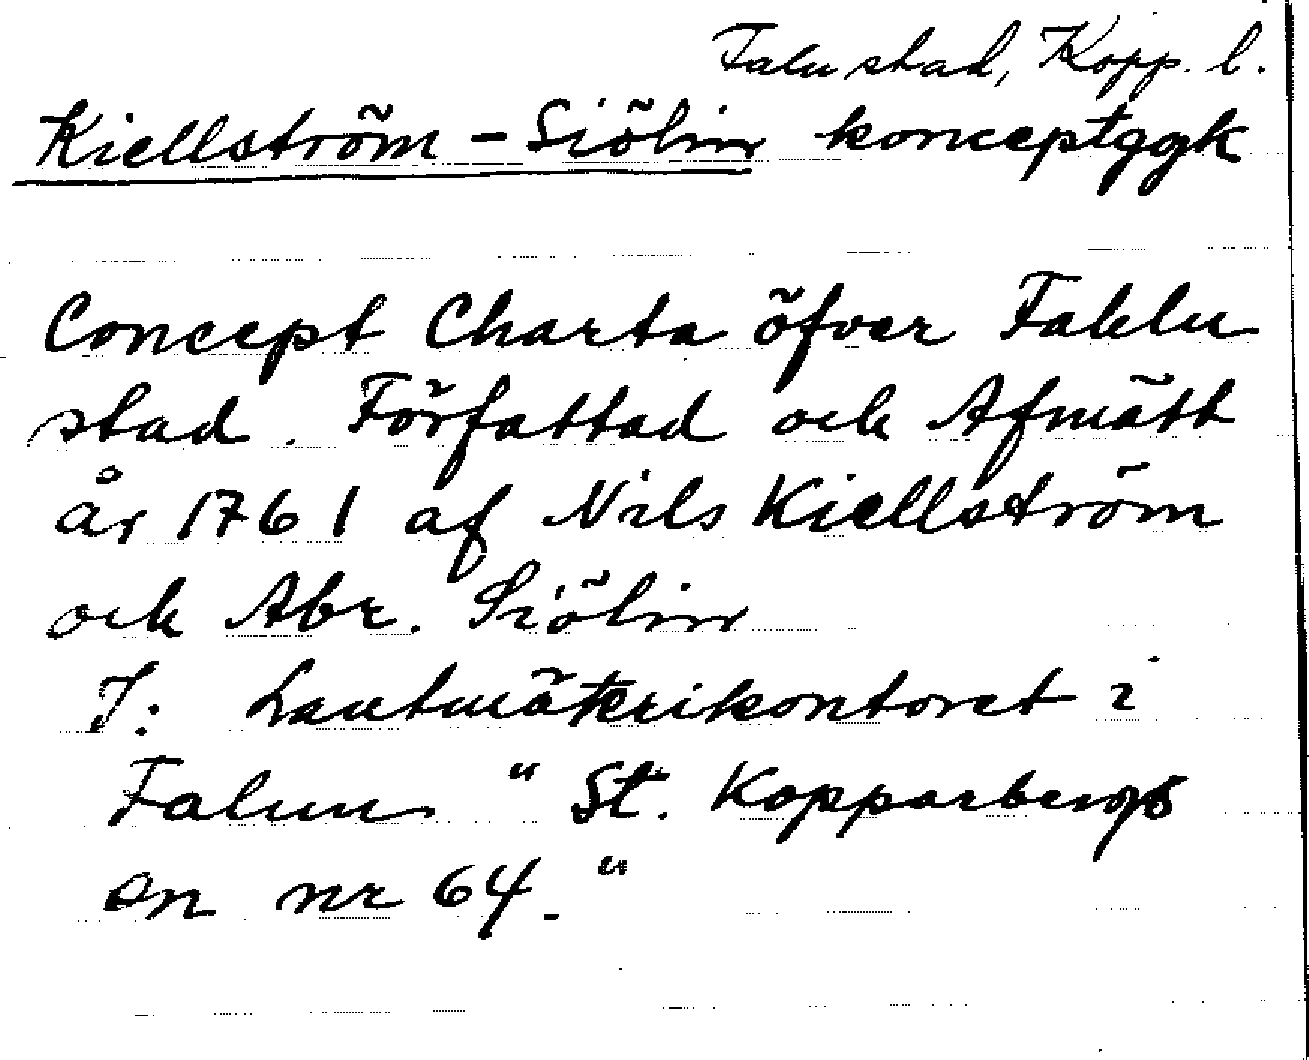 Falu stad, Kopp. l.
Kiellström - Siölin konceptggk
Concept Charta öfver Fahlu
stad. Författad och Afmätt
år 1761 af Nils Kiellström
och Abr. Siölin
I: Lantmäterikontoret i
Falun "St. Kopparbergs
sn nr 64."